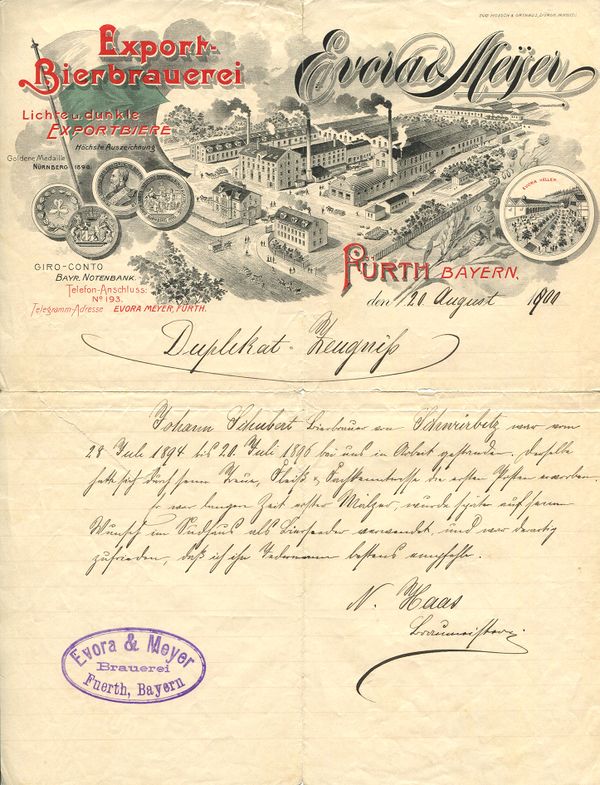 Export-
Bierbrauerei
Evora & Meyer
Lichte u. dunkle
EXPORTBIERE
Höchste Auszeichnung
Goldene Medaille
NÜRNBERG 1896
EVORA KELLER
GIRO-CONTO
BAYR. NOTENBANK.
Telefon-Anschluss:
No 193.
Telegramm-Adresse EVORA MEYER, FÜRTH.
FÜRTH BAYERN.
den 20. August 1900
Duplikat-Zeugniß
Johann Schubert Bierbrauer von Schwürbitz war vom
28 Juli 1894 bis 20. Juli 1896 bei uns in Arbeit gestanden. Derselbe
hat sich durch seine Treue, Fleiß & Fachkenntnisse die ersten Posten erworben.
Er war langen Zeit erster Mälzer, wurde später auf seinen
Wunsch im Sudhaus als Biersieder verwendet, und war derartig
zufrieden, daß ich ihn Jedermann bestens empfehle.
N. Haas
Braumeister
Evora & Meyer
Brauerei
Fuerth, Bayern